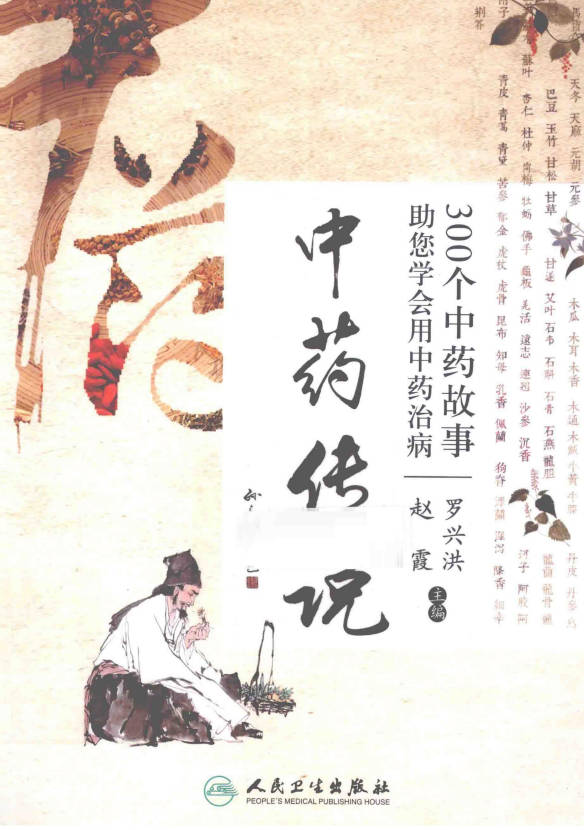 中药传说
300个中药故事
助您学会用中药治病
罗兴洪
赵霞
主编
天冬 天麻 元胡 元參 木瓜 木耳 木香 木通 木賊 牛黃 牛膝 丹皮 丹參
巴豆 玉竹 甘松 甘草 甘遂 艾叶 石韦 石斛 石膏 石燕 龍胆 龍齒 龍骨
蘇叶 杏仁 杜仲 烏梅 牡蛎 佛手 龜板 羌活 遠志 連翹 沙參 沉香 河子 阿胶 阿
青皮 青蒿 青黛 苦參 郁金 虎杖 虎骨 昆布 知母 乳香 佩蘭 狗脊 澤蘭 澤瀉 降香 細辛
荆芥
人民卫生出版社
PEOPLE'S MEDICAL PUBLISHING HOUSE